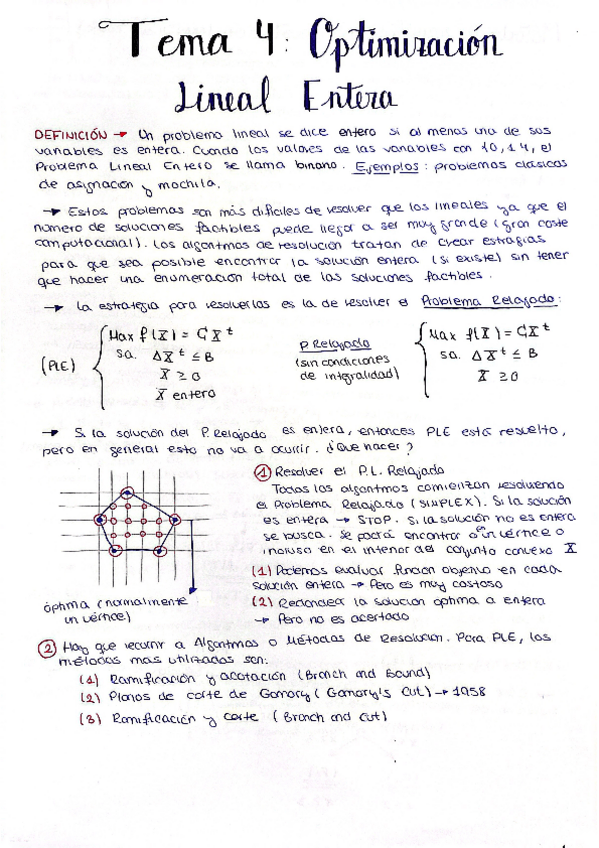 Tema 4: Optimización
Lineal Entera
DEFINICIÓN → Un problema lineal se dice entero si al menos una de sus
variables es entera. Cuando los valores de las variables son {0,1}, el
Problema Lineal Entero se llama binario. Ejemplos: problemas clásicos
de asignación y mochila.
→ Estos problemas son más difíciles de resolver que los lineales ya que el
número de soluciones factibles puede llegar a ser muy grande (gran coste
computacional). Los algoritmos de resolución tratan de crear estragias
para que sea posible encontrar la solución entera (si existe) sin tener
que hacer una enumeración total de las soluciones factibles.
→ La estrategia para resolverlos es la de resolver el Problema Relajado:
(PLE)
Max f(X) = CX^t
s.a. AX^t ≤ B
X ≥ 0
X entero
P. Relajado
(sin condiciones
de integralidad)
Max f(X) = CX^t
s.a. AX^t ≤ B
X ≥ 0
→ Si la solución del P. Relajado es entera, entonces PLE está resuelto,
pero en general esto no va a ocurrir. ¿Que hacer?
① Resolver el P.L. Relajado
Todos los algoritmos comienzan resolviendo
el Problema Relajado (SIMPLEX). Si la solución
es entera → STOP. Si la solución no es entera
se busca. Se podrá encontrar en un vértice o
incluso en el interior del conjunto convexo X
(1) Podemos evaluar función objetivo en cada
solución entera → Pero es muy costoso
(2) Redondear la solución óptima a entera
→ Pero no es acertado
óptima (normalmente
un vértice)
② Hay que recurrir a Algoritmos o Métodos de Resolución. Para PLE, los
métodos más utilizados son:
(1) Ramificación y acotación (Branch and Bound)
(2) Planos de corte de Gomory (Gomory's Cut) → 1958
(3) Ramificación y corte (Branch and Cut)